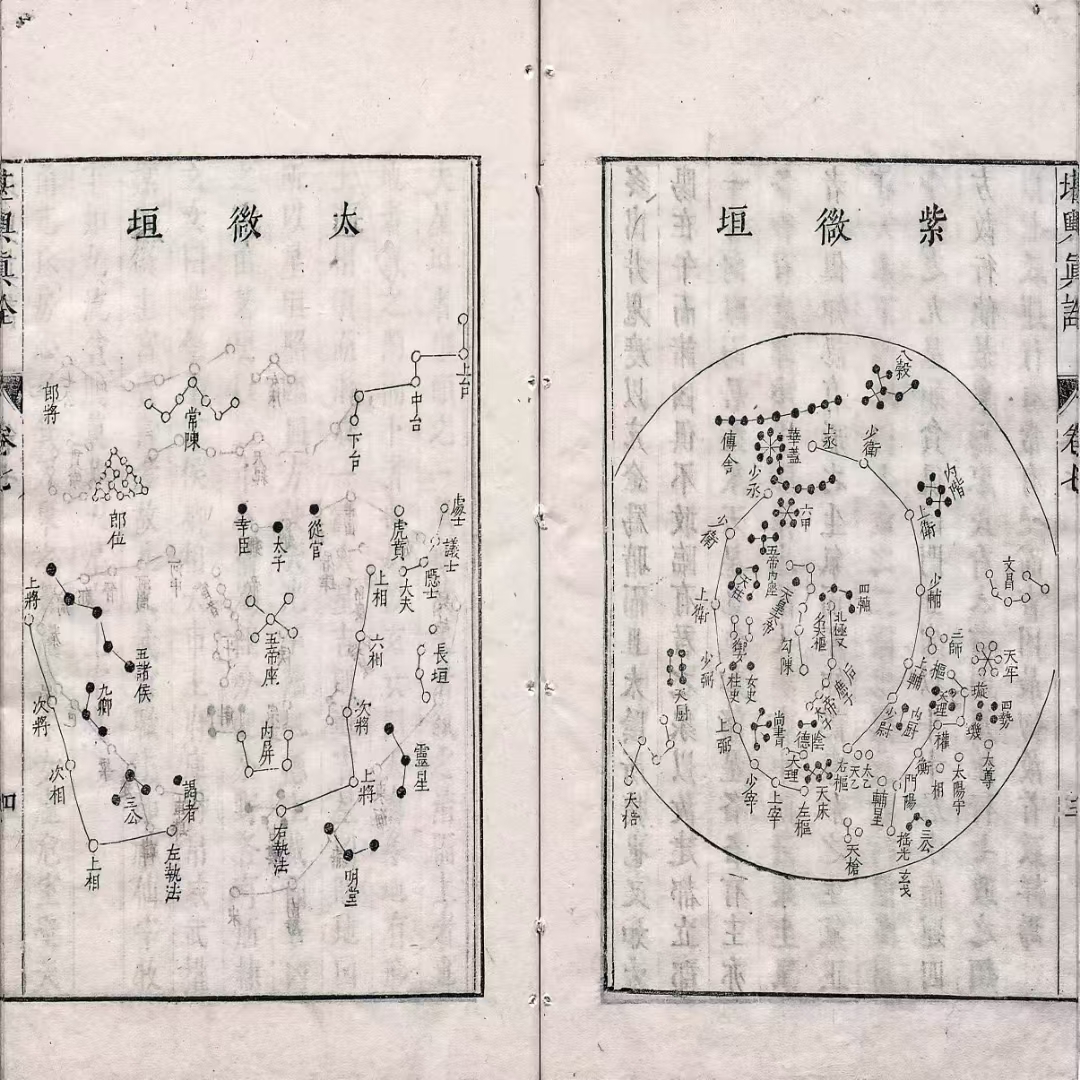 紫微垣
八穀
傳舍
華蓋
上丞
少衛
少丞
內階
六甲
上衛
五帝內座
文昌
少輔
四輔
上衛
天皇大帝
勾陳
三師
天牢
上輔
樞
璇
天理
四勢
少弼
柱史
女史
天厨
少尉
內厨
權
璣
上弼
尚書
陰德
衡
太尊
大理
右樞
天乙
太乙
相
太陽守
少宰
上宰
天床
左樞
輔星
門陽
搖光
三公
天棓
天槍
玄戈
太微垣
上台
中台
下台
郎將
常陳
郎位
幸臣
太子
從官
虎賁
處士
議士
上將
上相
大夫
五帝座
五諸侯
六相
長垣
九卿
次將
次將
內屏
靈星
次相
上將
三公
謁者
右執法
明堂
上相
左執法
卷七